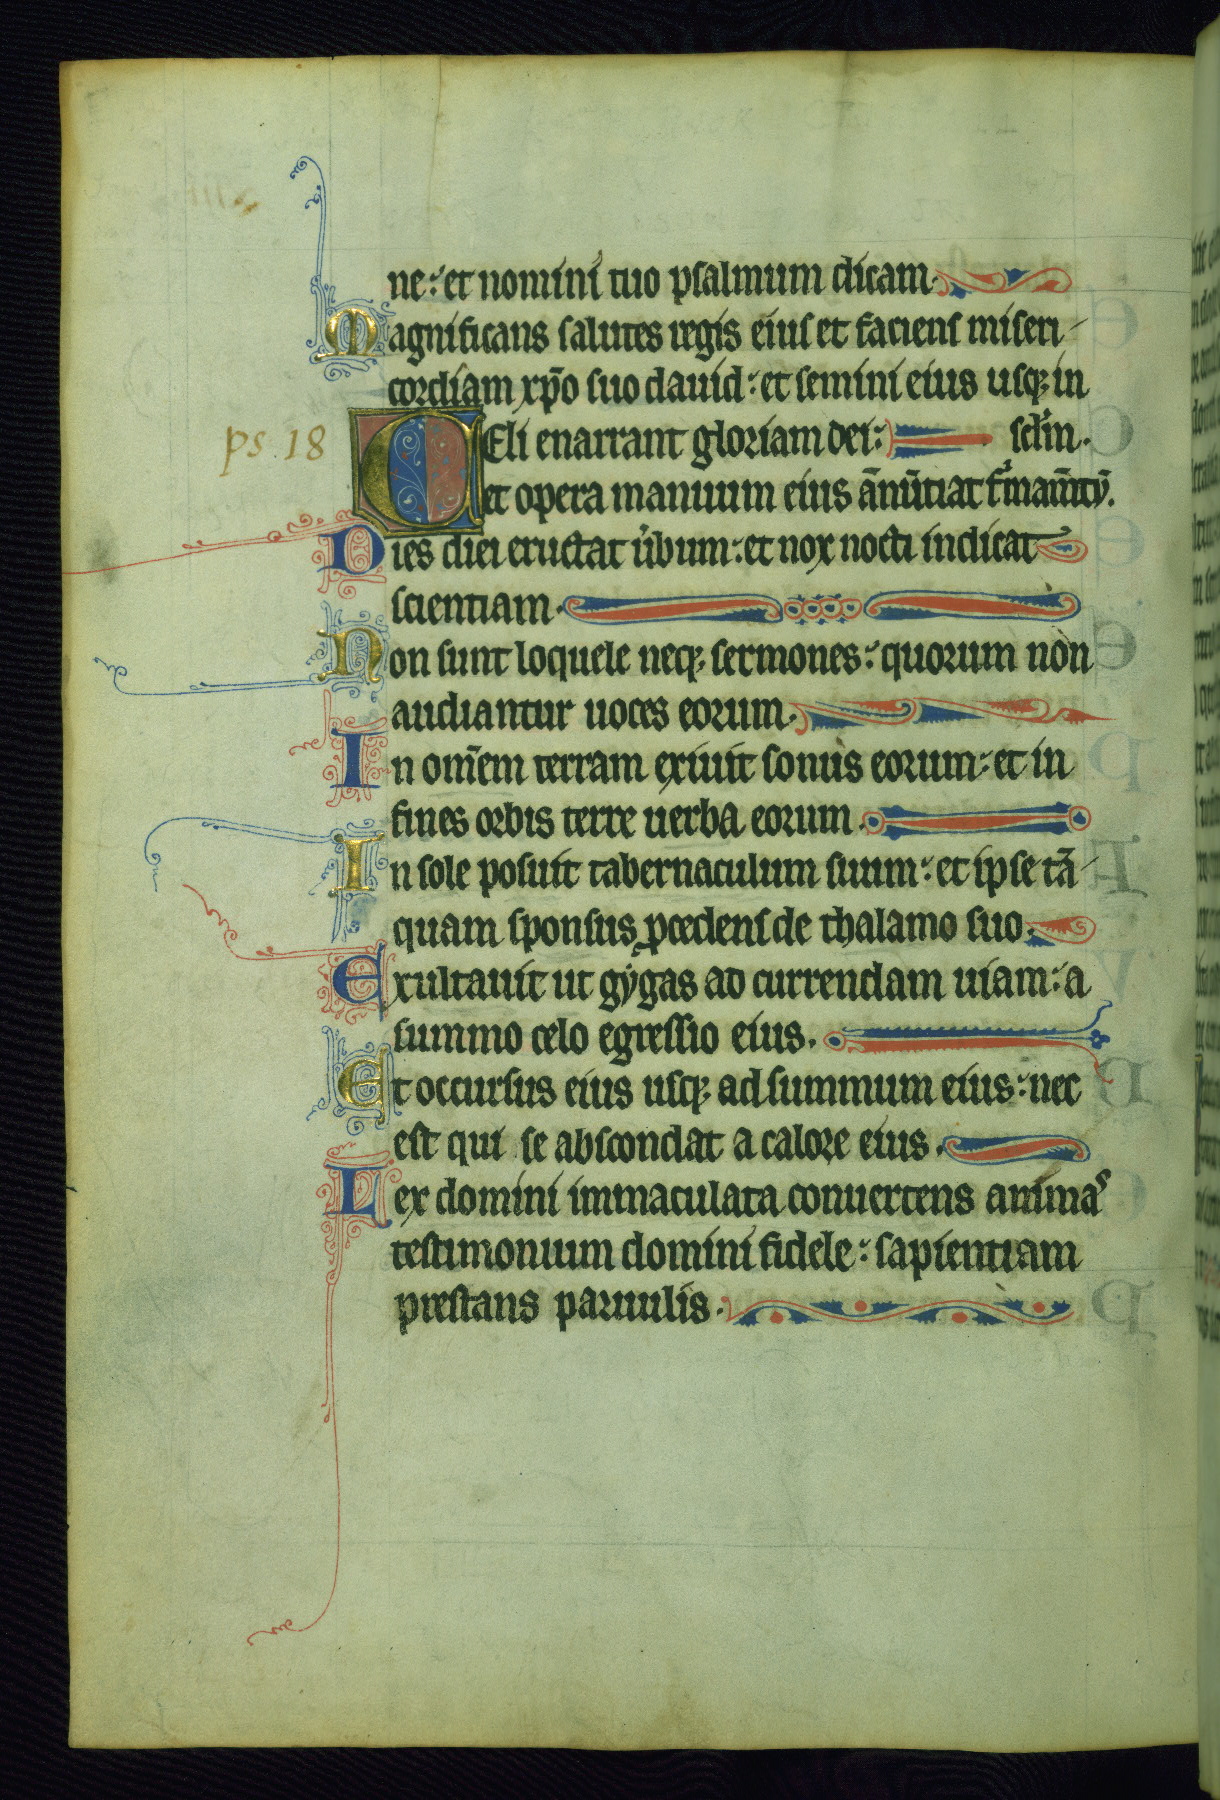 ne: et nomini tuo psalmum dicam.
Magnificans salutes regis eius et faciens miseri-
cordiam xp̄o suo dauid: et semini eius usq; in
ps. 18
CEli enarrant gloriam dei: sclm̄.
et opera manuum eius ānūtiat firmam̄tū.
Dies diei eructat u̾bum: et nox nocti indicat
scientiam.
Non sunt loquele neq; sermones: quorum non
audiantur uoces eorum.
In om̄em terram exiuit sonus eorum: et in
fines orbis terre uerba eorum.
In sole posuit tabernaculum suum: et ipse tā-
quam sponsus ꝓcedens de thalamo suo.
Exultauit ut gẏgas ad currendam uiam: a
summo celo egressio eius.
Et occursus eius usq; ad summum eius: nec
est qui se abscondat a calore eius.
Lex domini immaculata conuertens animas
testimonium domini fidele: sapientiam
prestans paruulis.